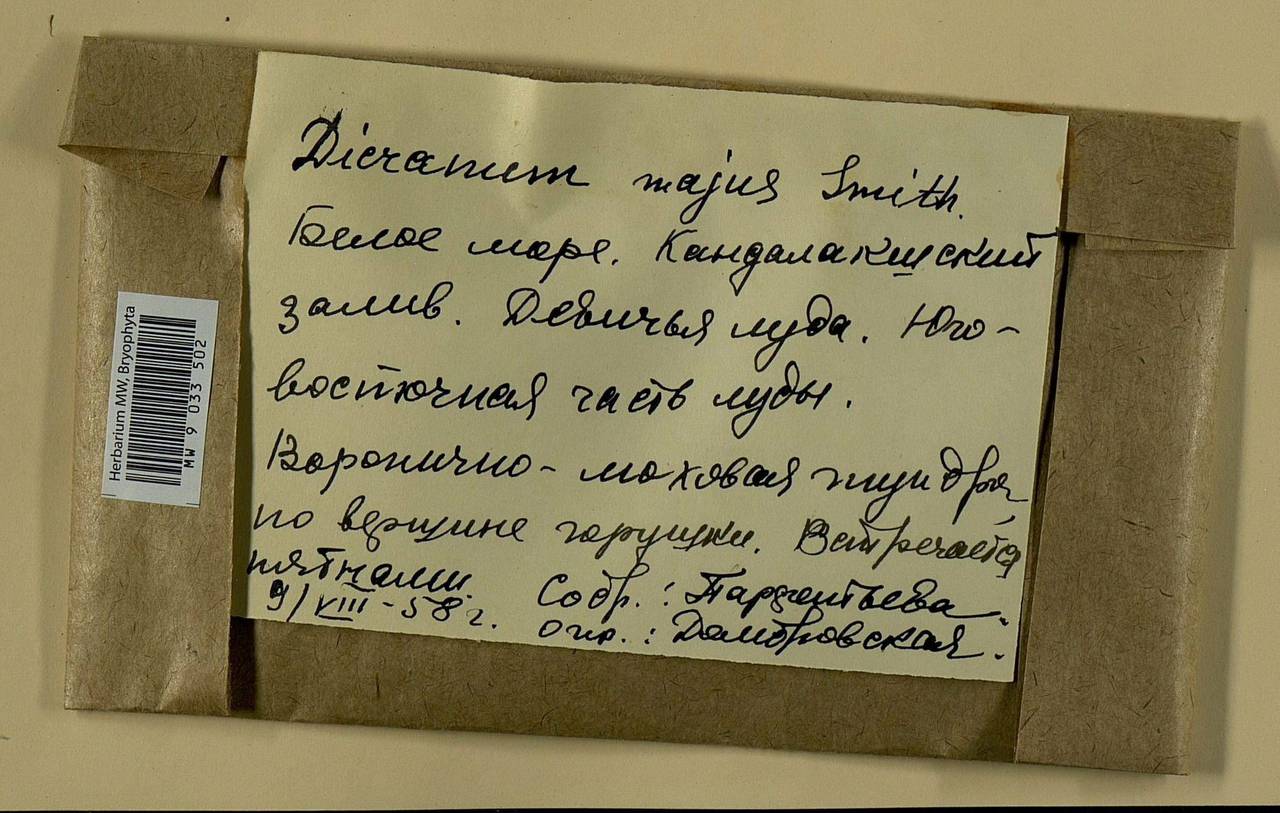 Dicranum majus Smith.
Белое море. Кандалакшский
залив. Девичья луда. Юго-
восточная часть луды.
Воронично-моховая тундра
по вершине горушки. Встречается
пятнами. Собр.: Парфентьева.
9/VIII-58 г. опр.: Домбровская.
Herbarium MW, Bryophyta
MW 9 033 502